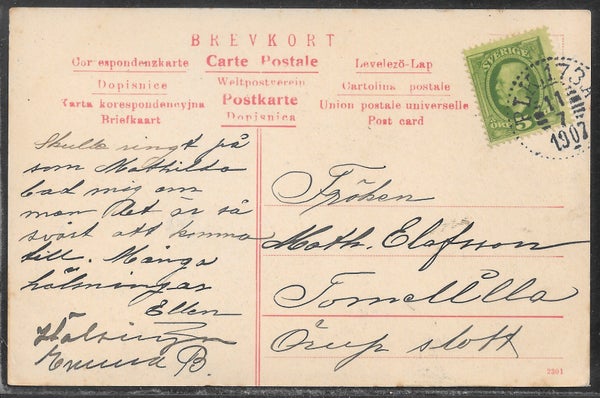 BREVKORT
Correspondenzkarte Carte Postale Levelezö-Lap
Dopisnice Weltpostverein Cartolina postale
Karta korespondencyjna Postkarte Union postale universelle
Briefkaart Dopisnica Post card
SVERIGE
5 ÖRE
PKXP 173 A
11
7
1907
Skulle ringt på
som Mathilda
bad mig om
man det är så
svårt att komma
till. Många
hälsningar
Ellen
Hälsingar
B.
Fröken
Math. Elofsson
Tomelilla
Örup slott
2301